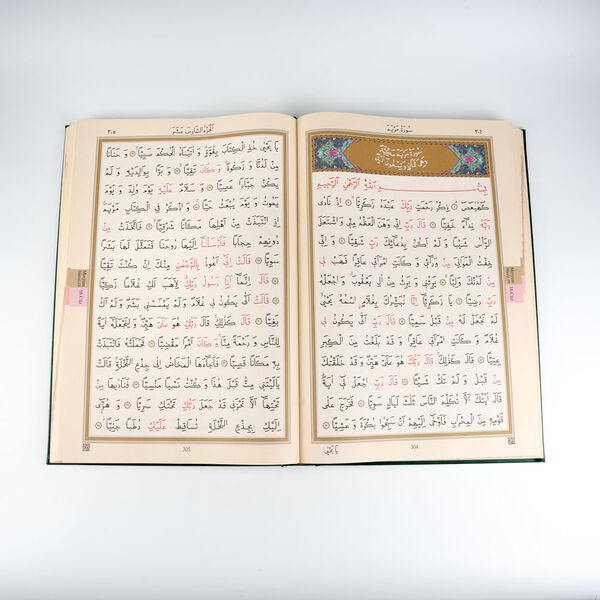 سورة مريم
٣٠٤
سُورَةُ مَرْيَمَ مَكِّيَّةٌ
بِسْمِ اللّٰهِ الرَّحْمٰنِ الرَّحِيمِ
كٓهٰيٰعٓصٓ ۞ ذِكْرُ رَحْمَتِ رَبِّكَ عَبْدَهُ زَكَرِيَّا ۞ اِذْ نَادٰى
رَبَّهُ نِدَٓاءً خَفِيًّا ۞ قَالَ رَبِّ اِنِّي وَهَنَ الْعَظْمُ مِنِّي وَاشْتَعَلَ
الرَّأْسُ شَيْبًا وَلَمْ اَكُنْ بِدُعَٓائِكَ رَبِّ شَقِيًّا ۞ وَاِنِّي
خِفْتُ الْمَوَالِيَ مِنْ وَرَٓائِي وَكَانَتِ امْرَاَتِي عَاقِرًا فَهَبْ لِي
مِنْ لَدُنْكَ وَلِيًّا ۞ يَرِثُنِي وَيَرِثُ مِنْ اٰلِ يَعْقُوبَ وَاجْعَلْهُ
رَبِّ رَضِيًّا ۞ يَا زَكَرِيَّٓا اِنَّا نُبَشِّرُكَ بِغُلَامٍ اسْمُهُ يَحْيٰى
لَمْ نَجْعَلْ لَهُ مِنْ قَبْلُ سَمِيًّا ۞ قَالَ رَبِّ اَنّٰى يَكُونُ لِي
غُلَامٌ وَكَانَتِ امْرَاَتِي عَاقِرًا وَقَدْ بَلَغْتُ مِنَ الْكِبَرِ
عِتِيًّا ۞ قَالَ كَذٰلِكَ قَالَ رَبُّكَ هُوَ عَلَيَّ هَيِّنٌ وَقَدْ خَلَقْتُكَ
مِنْ قَبْلُ وَلَمْ تَكُ شَيْئًا ۞ قَالَ رَبِّ اجْعَلْ لِي اٰيَةً
قَالَ اٰيَتُكَ اَلَّا تُكَلِّمَ النَّاسَ ثَلٰثَ لَيَالٍ سَوِيًّا ۞ فَخَرَجَ عَلٰى
قَوْمِهِ مِنَ الْمِحْرَابِ فَاَوْحٰٓى اِلَيْهِمْ اَنْ سَبِّحُوا بُكْرَةً وَعَشِيًّا ۞
يَا يَحْيٰى
304
الجزء السادس عشر
٣٠٥
يَا يَحْيٰى خُذِ الْكِتَابَ بِقُوَّةٍ وَاٰتَيْنَاهُ الْحُكْمَ صَبِيًّا ۞ وَحَنَانًا
مِنْ لَدُنَّا وَزَكٰوةً وَكَانَ تَقِيًّا ۞ وَبَرًّا بِوَالِدَيْهِ وَلَمْ
يَكُنْ جَبَّارًا عَصِيًّا ۞ وَسَلَامٌ عَلَيْهِ يَوْمَ وُلِدَ وَيَوْمَ
يَمُوتُ وَيَوْمَ يُبْعَثُ حَيًّا ۞ وَاذْكُرْ فِي الْكِتَابِ مَرْيَمَ
اِذِ انْتَبَذَتْ مِنْ اَهْلِهَا مَكَانًا شَرْقِيًّا ۞ فَاتَّخَذَتْ مِنْ
دُونِهِمْ حِجَابًا فَاَرْسَلْنَٓا اِلَيْهَا رُوحَنَا فَتَمَثَّلَ لَهَا بَشَرًا
سَوِيًّا ۞ قَالَتْ اِنِّٓي اَعُوذُ بِالرَّحْمٰنِ مِنْكَ اِنْ كُنْتَ تَقِيًّا
۞ قَالَ اِنَّمَٓا اَنَا رَسُولُ رَبِّكِ لِاَهَبَ لَكِ غُلَامًا زَكِيًّا
۞ قَالَتْ اَنّٰى يَكُونُ لِي غُلَامٌ وَلَمْ يَمْسَسْنِي بَشَرٌ وَلَمْ اَكُ
بَغِيًّا ۞ قَالَ كَذٰلِكِ قَالَ رَبُّكِ هُوَ عَلَيَّ هَيِّنٌ وَلِنَجْعَلَهُٓ اٰيَةً
لِلنَّاسِ وَرَحْمَةً مِنَّا وَكَانَ اَمْرًا مَقْضِيًّا ۞ فَحَمَلَتْهُ فَانْتَبَذَتْ
بِهِ مَكَانًا قَصِيًّا ۞ فَاَجَٓاءَهَا الْمَخَاضُ اِلٰى جِذْعِ النَّخْلَةِ قَالَتْ
يَا لَيْتَنِي مِتُّ قَبْلَ هٰذَا وَكُنْتُ نَسْيًا مَنْسِيًّا ۞ فَنَادٰيهَا مِنْ
تَحْتِهَٓا اَلَّا تَحْزَنِي قَدْ جَعَلَ رَبُّكِ تَحْتَكِ سَرِيًّا ۞ وَهُزِّٓي
اِلَيْكِ بِجِذْعِ النَّخْلَةِ تُسَاقِطْ عَلَيْكِ رُطَبًا جَنِيًّا ۞
305